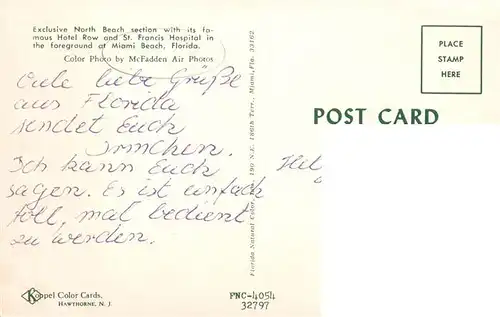 Exclusive North Beach section with its fa-
mous Hotel Row and St. Francis Hospital in
the foreground at Miami Beach, Florida.
Color Photo by McFadden Air Photos
PLACE
STAMP
HERE
POST CARD
Viele liebe Grüße
aus Florida
sendet Euch
Irmchen.
Ich kann Euch
sagen. Es ist einfach
toll, mal bedient
zu werden.
Florida Natural Color, 190 N.E. 186th Terr., Miami, Fla. 33162
Koppel Color Cards.
HAWTHORNE, N. J.
FNC-4054
32797